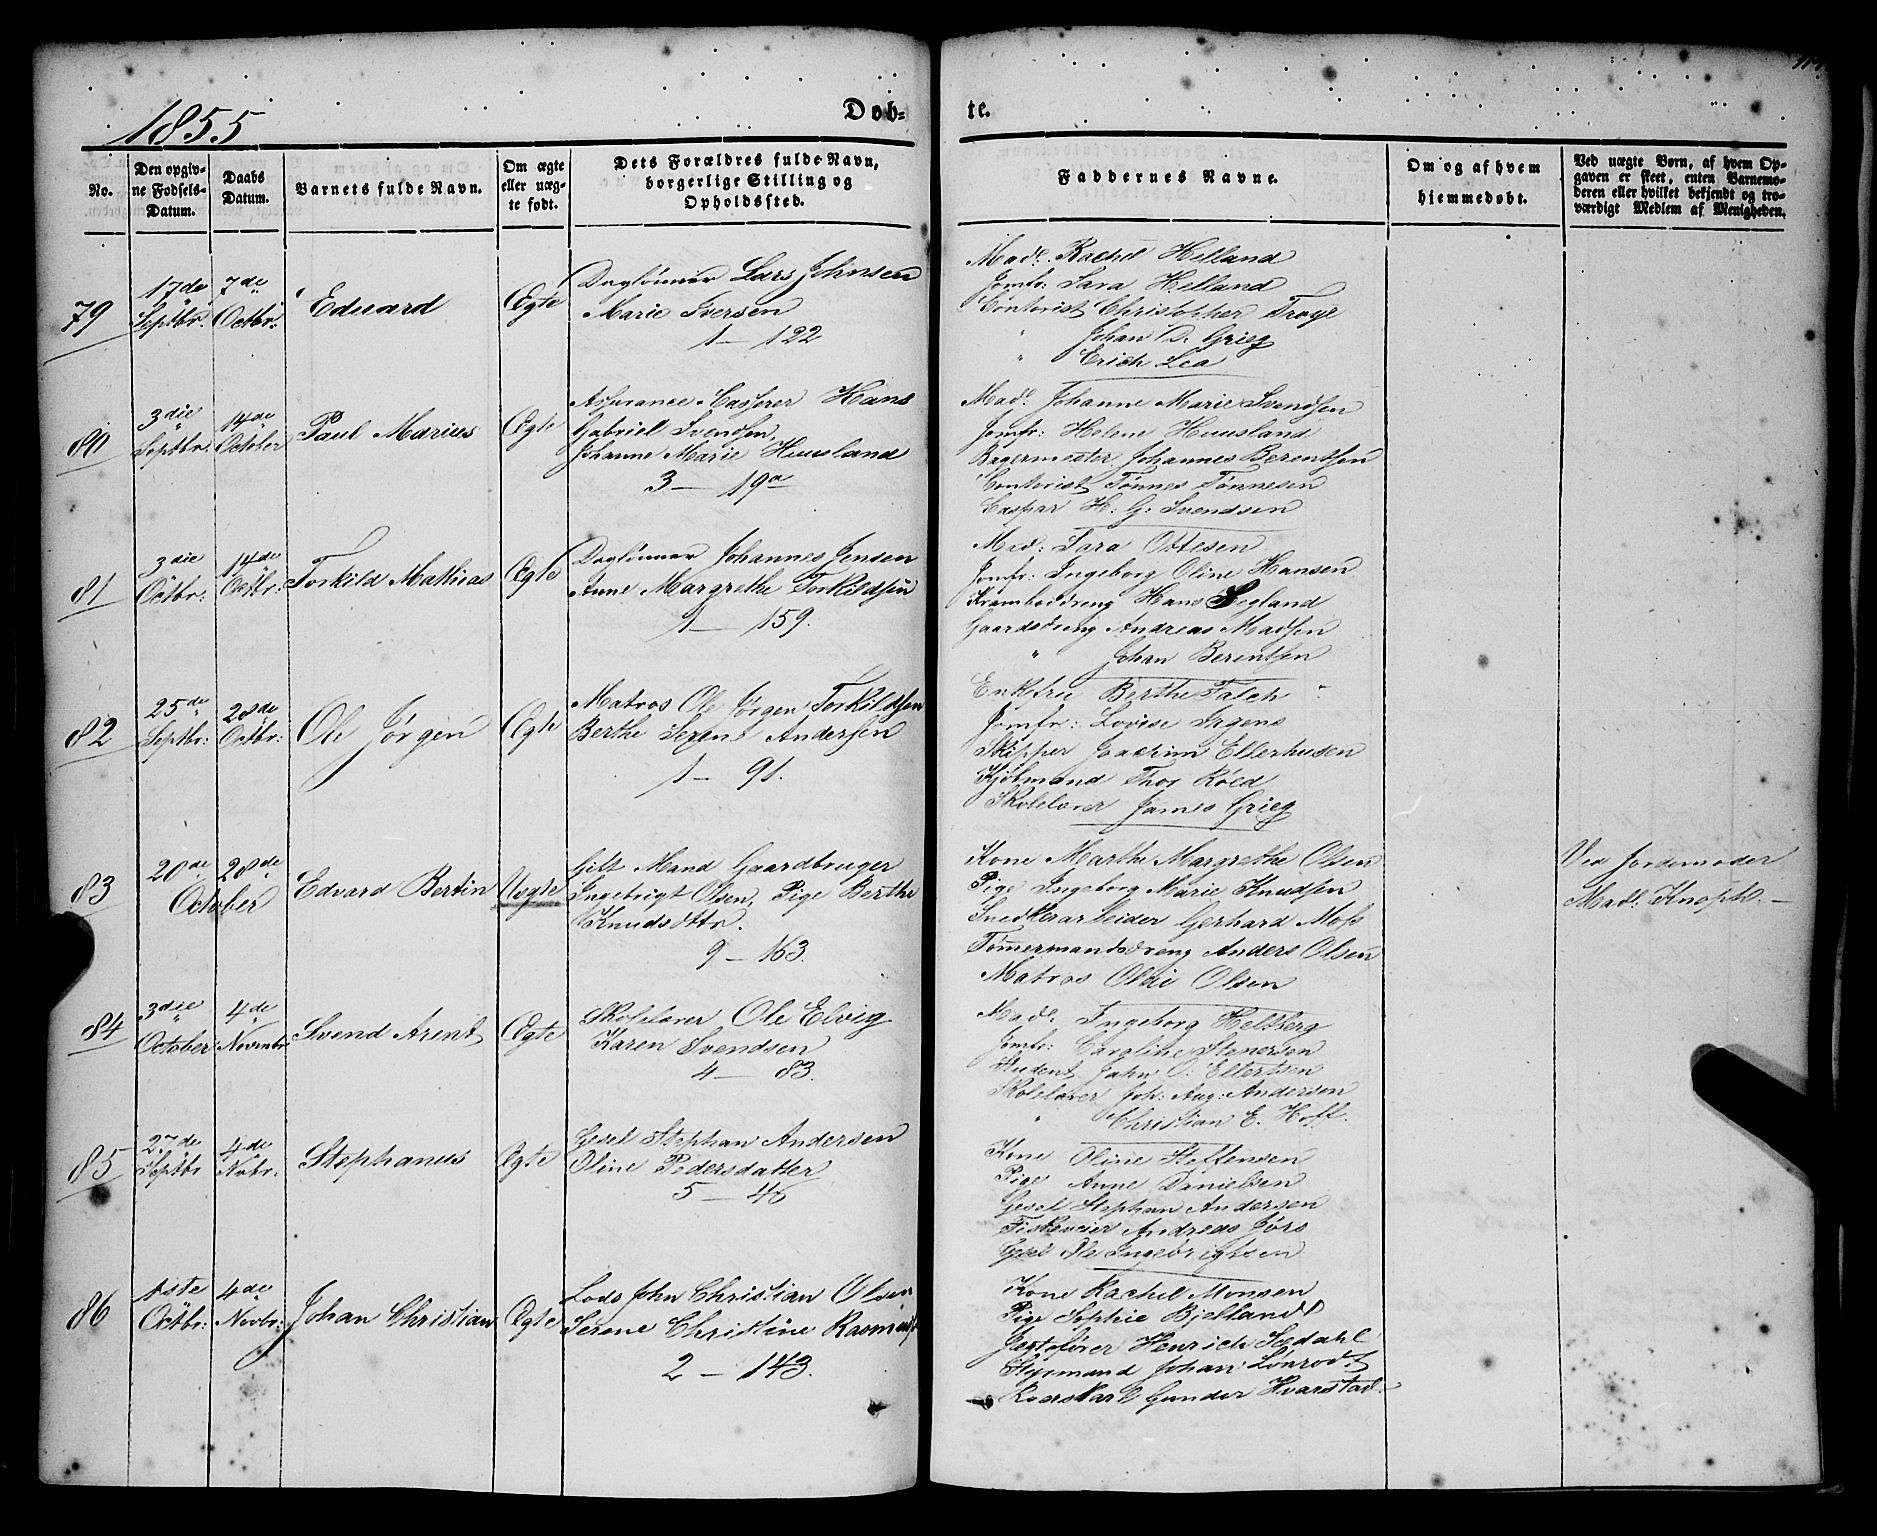 1855
Døb-
te.
No.
Den opgiv-
ne Fødsels-
Datum.
Daabs
Datum.
Barnets fulde Navn.
Om ægte
eller uæg-
te født.
Dets Forældres fulde Navn,
borgerlige Stilling og
Opholdssted.
Faddernes Navne.
Om og af hvem
hjemmedøbt.
Ved uægte Børn, af hvem Op-
gaven er skeet, enten Barnemo-
deren eller hvilket bekjendt og tro-
værdigt Medlem af Menigheden.
79
17de
Septbr.
7de
Octbr:
Eduard
Ægte
Daglønner Lars Johnsen
Marie Iversen
1 — 122
Madl. Rachel Helland
Jomfr: Sara Helland
Contorist Christopher Troye
" Johan D. Grieg
" Erich Lea
80
3die
Septbr.
14de
October
Paul Marius
Ægte
Assurance Casserer Hans
Gabriel Svendsen
Johanne Marie Huusland
3 — 19a
Madl. Johanne Marie Svendsen
Jomfr: Helem Huusland
Bagermester Johannes Berentsen
Contorist Tønnes Tønnesen
Caspar H. G. Svendsen
81
3die
Octbr:
14de
Octbr:
Torkild Mathias
Ægte
Daglønner Johannes Jensen
Anne Margrethe Torkildsen
1 — 159.
Mad: Sara Ottesen
Jomfr: Ingeborg Oline Hansen
Kramboddreng Hans Segland
Gaardsdreng Andreas Madsen
" Johan Berentsen
82
25de
Septbr:
28de
Octbr:
Ole Jørgen
Ægte
Matros Ole Jørgen Torkildsen
Berthe Serene Andersen
1 — 91.
Enkefru Berthe Falch
Jomfr: Lovise Irgens
Skipper Joachim Ellerhusen
Kjøbmand Thor Røed
Skolelærer James Grieg
83
20de
October
28de
Edvard Bertin
Uægte
Gift Mand Gaardbruger
Ingebrigt Olsen, Pige Berthe
Knudsdttr.
9 — 163.
Kone Marthe Margrethe Olsen
Pige Ingeborg Marie Knudsen
Snedkerarbeider Gerhard Moss
Tømermandsdreng Anders Olsen
Matros Olai Olsen
Ved Jordemoder
Madl: Knoph. —
84
3die
October
4de
Novembr
Svend Arent
Ægte
Skolelærer Ole Elvig
Karen Svendsen
4 — 83.
Madl. Ingeborg Heltberg
Jomfr: Caroline Stenersen
Student John O. Ellertsen
Skolelærer Joh: Aug: Andersen
" Christian E. Hoff.
85
27de
Septbr
4de
Nobr.
Stephanus
Ægte
Gesel Stephan Andersen
Oline Pedersdatter
5 — 46
Kone Oline Steffensen
Pige Anne Danielsen
Gesel Stephan Andersen
Fiskeveier Andreas Jørs
Gesel Ole Ingebrigtsen
86
1ste
Octbr:
4de
Novbr:
Johan Christian
Ægte
Lods John Christian Olsen
Serene Christine Rasmuss
2 — 143.
Kone Rachel Monsen
Pige Sophie Bjelland
Jegtefører Henrich Sædahl
Styrmand Johan Lonrodt
Roerskarl Gunder Hvarstad.